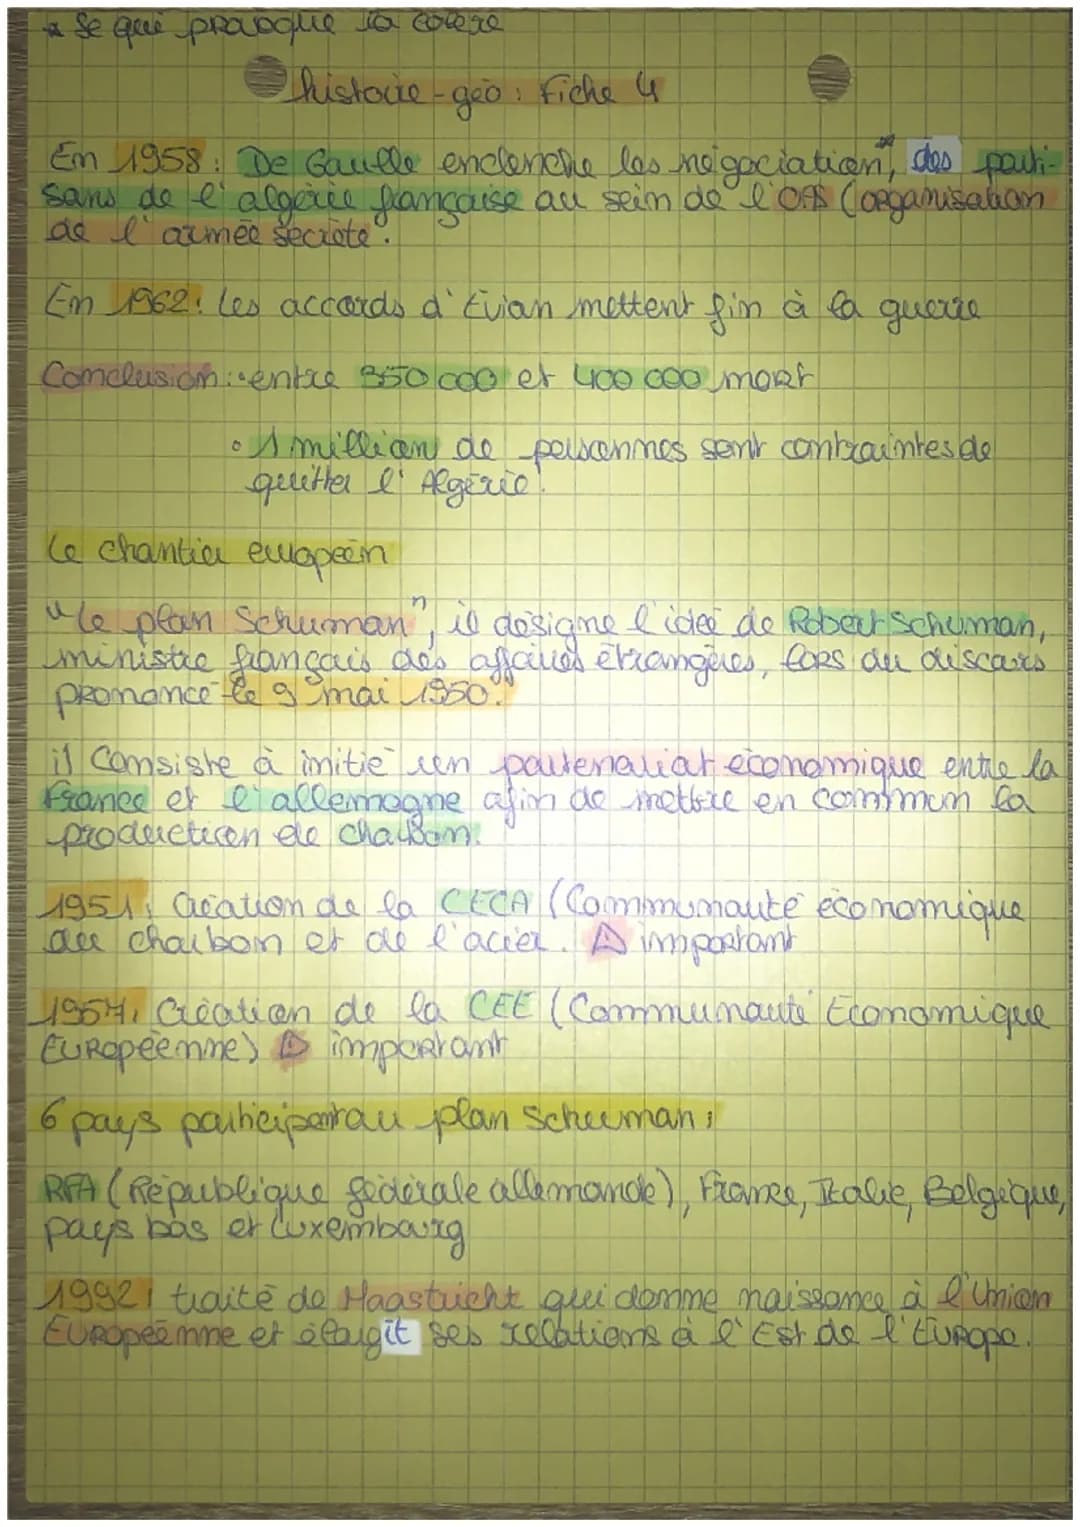 * Se qui provoque la colère
histoire-géo : Fiche 4
En 1958 : De Gaulle enclenche les négociation*, des parti-
sans de l'algérie française au sein de l'OAS (organisation
de l'armée secrète.
En 1962 : les accords d'Evian mettent fin à la guerre
Conclusion : • entre 350 000 et 400 000 mort
• 1 million de personnes sont contraintes de
quitter l'Algérie.
Le chantier européen
"le plan Schuman", il désigne l'idée de Robert Schuman,
ministre français des affaires étrangères, lors du discours
prononcé le 9 mai 1950.
il Consiste à initié un partenariat économique entre la
France et l'allemagne afin de mettre en commun la
production de charbon.
1951 : Création de la CECA (Communauté économique
du charbon et de l'acier. ⚠ important
1957 : Création de la CEE (Communauté Economique
Européenne) ⚠ important
6 pays participent au plan Schuman :
RFA (République fédérale allemande), France, Italie, Belgique,
pays bas et Luxembourg
1992 : traité de Maastricht qui donne naissance à l'Union
Européenne et élargit ses relations à l'Est de l'Europe.